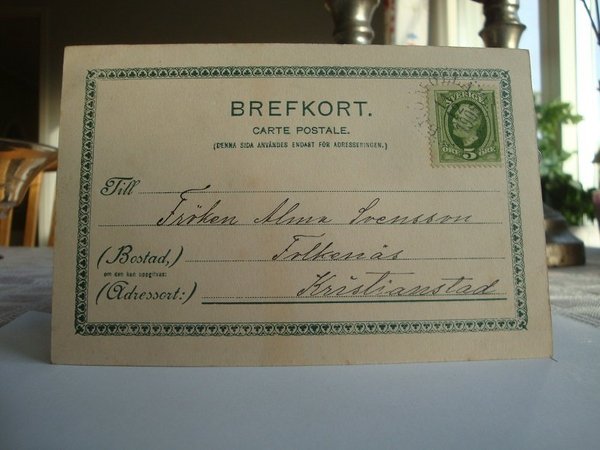 BREFKORT.
CARTE POSTALE.
(DENNA SIDA ANVÄNDES ENDAST FÖR ADRESSERINGEN.)
SVERIGE
ÖRE 5 ÖRE
Till
Fröken Alma Svensson
(Bostad,) Tolkenäs
om den kan uppgifvas:
(Adressort:) Kristianstad